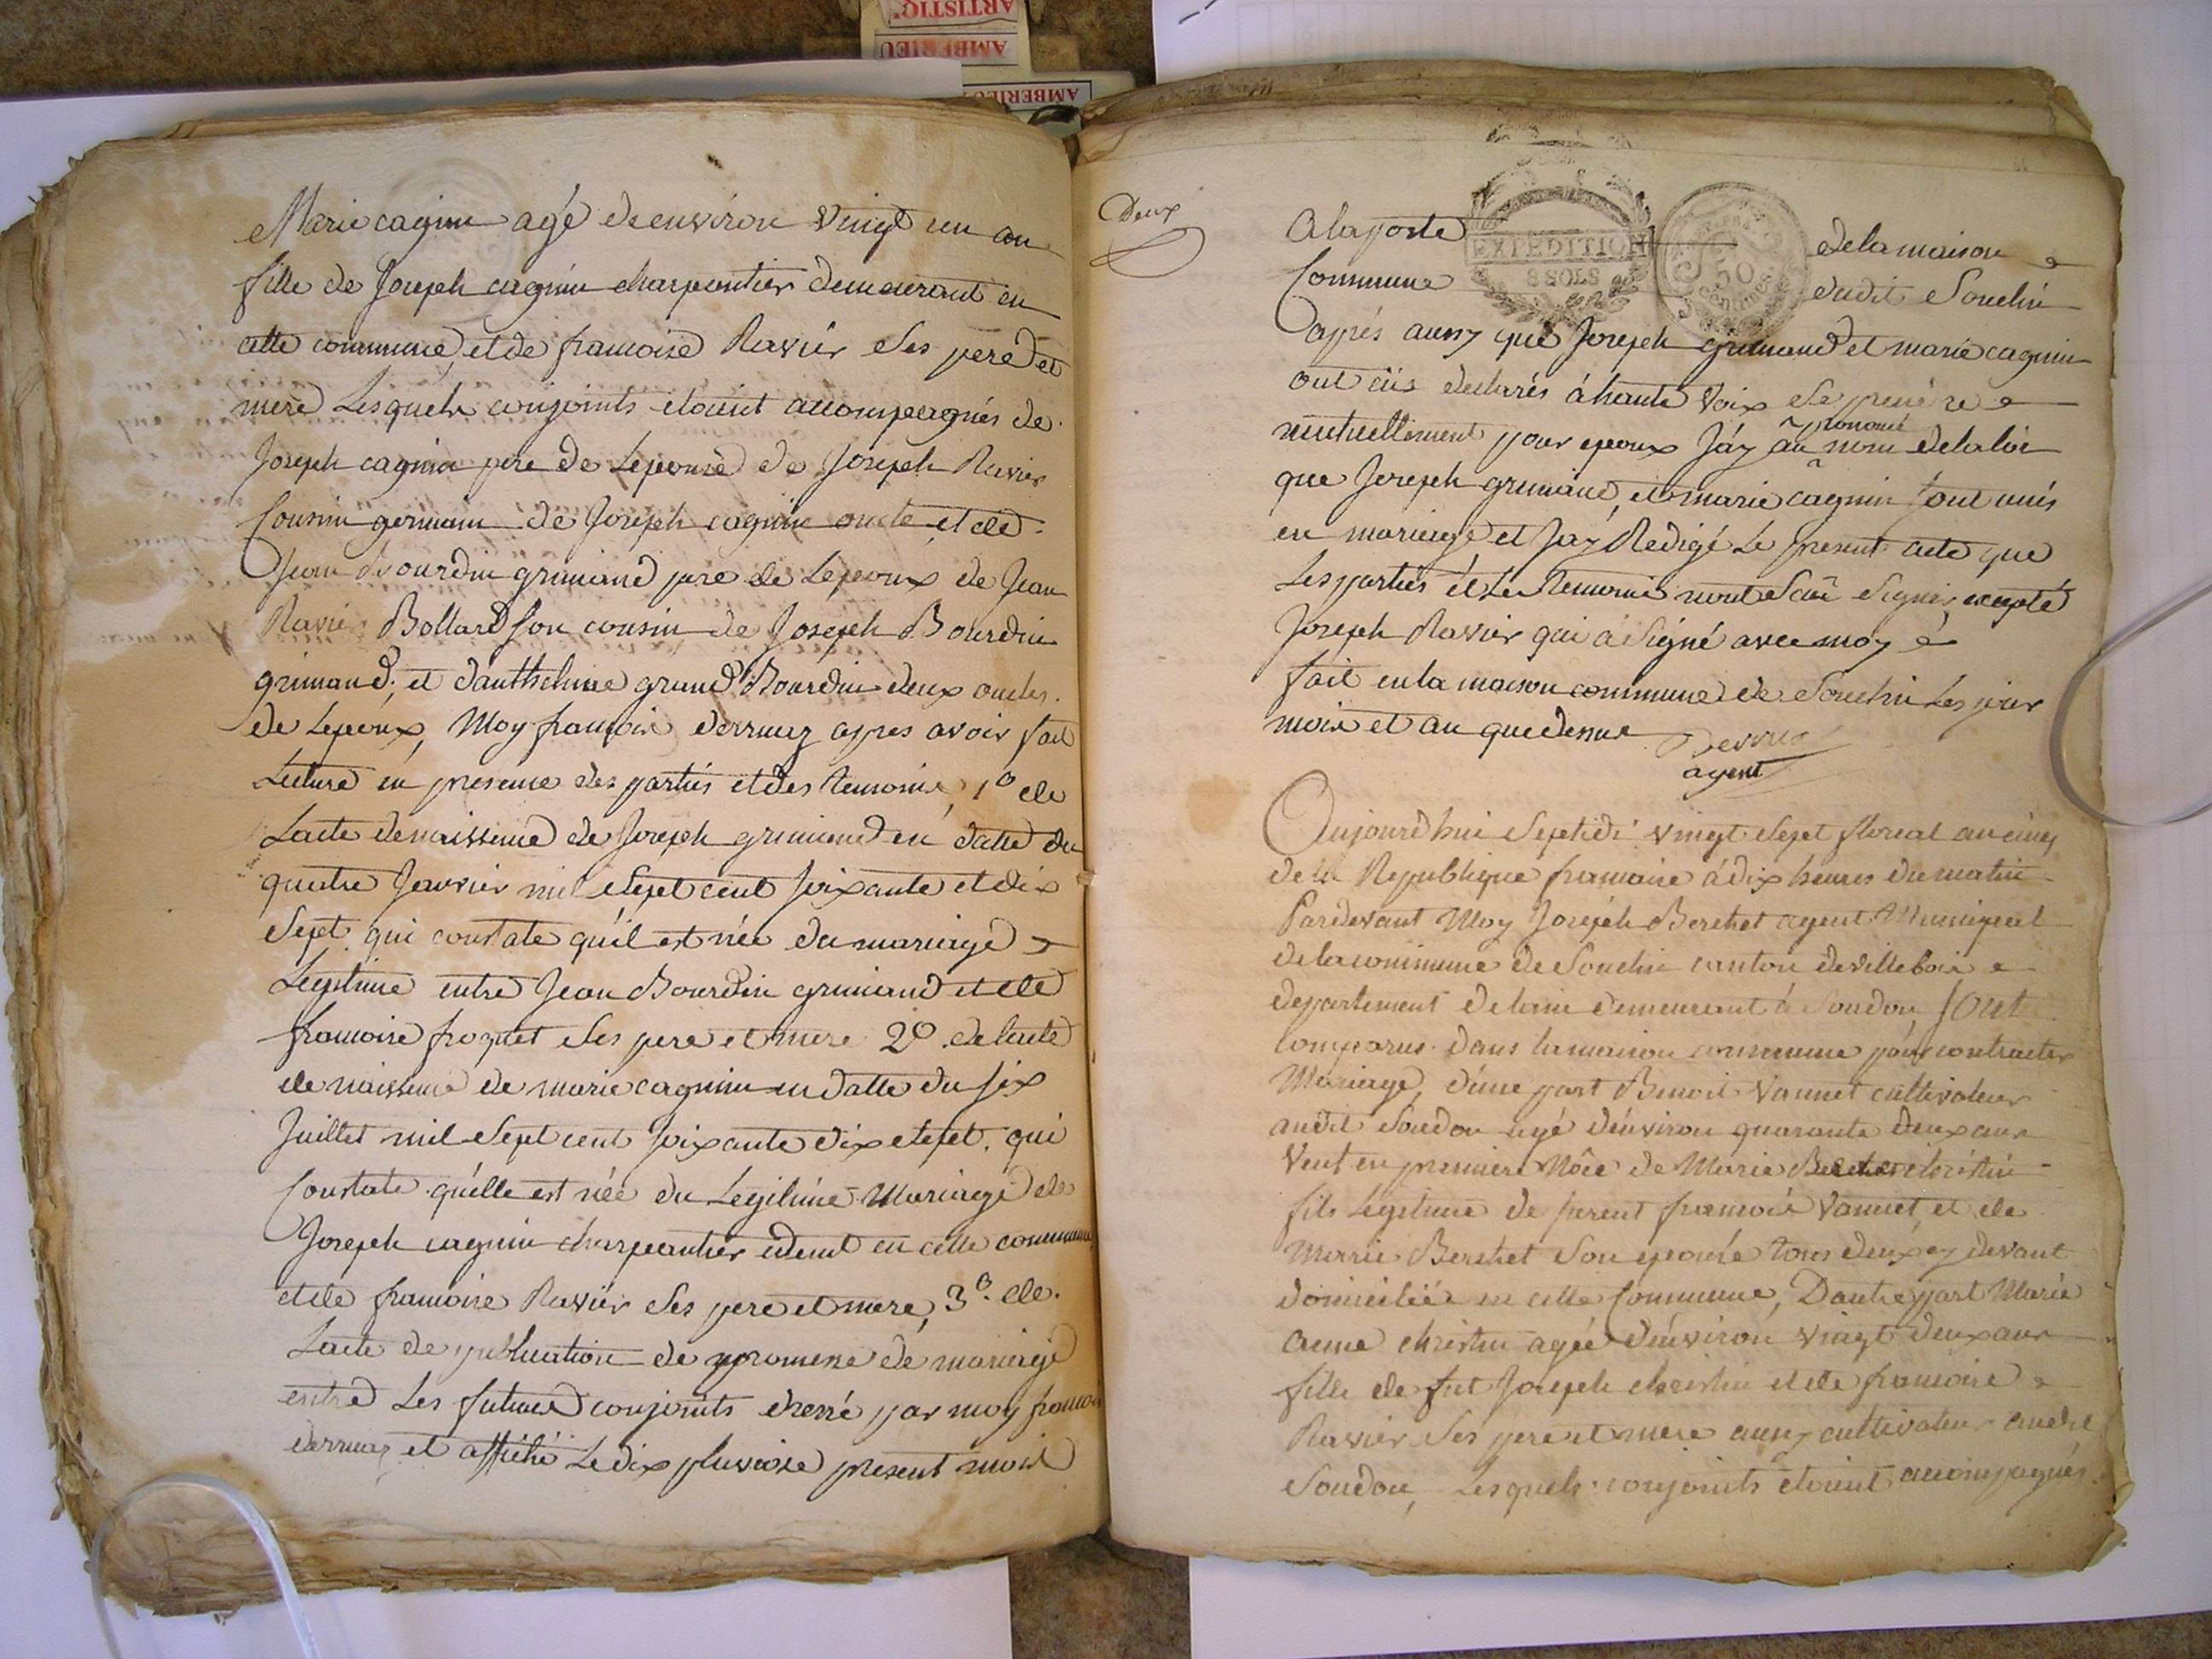 ARTISTIQ'
AMBERIEU
AMBERIEU
Marie cagnin agé de environ vingt un an
fille de Joseph cagnin charpentier demeurant en
cette commune, et de francoise Ravier Ses pere et
mere Lesquels conjoints etoient accompagnés de
Joseph cagnin pere de Lepouse de Joseph Ravier
Cousin germain de Joseph cagnin oncle et de
Jean Bourdin grimand pere de Lepoux de Jean
Ravier Bollard Son cousin de Joseph Bourdin
grimand, et d'anthelme grand Bourdin deux oncles
de Lepoux, Moy francois derruaz apres avoir fait
Lecture en presence des parties et des temoins, 1° de
Lacte de naissance de Joseph grimand en datte du
quatre Janvier mil Sept cent Soixante et dix
Sept qui constate qu'il est née du mariage
Legitime entre Jean Bourdin grimand et de
francoise froquet Ses pere et mere 2° de Lacte
de naissance de marie cagnin en datte du Six
Juillet mil Sept cent Soixante dix et Sept. qui
Constate qu'elle est née du Legitime Mariage de
Joseph cagnin charpentier en cette commune
et de francoise Ravier Ses pere et mere, 3° de
Lacte de publication de promesse de mariage
entre Les futures conjoints dressé par moy francois
derruaz et affiché Le dix pluviose present mois
Deux
A la porte de la maison
EXPEDITION
8 SOLS
50
centimes
Commune dudit Souclin
apprés aussy que Joseph grimand et marie cagnin
ont declarés á haute voix Se prendre
mutuellement pour epoux Jáy prononcé au nom de la loi
que Joseph grimand, et marie cagnin Sont unis
en mariage et Jáy Redigé Le present acte que
Les parties et Les temoins nont Scû Signer, excepté
Joseph Ravier qui á Signé avec moy
fait en la maison commune de Souclin Les jour
mois et an que dessus Derruaz
agent
Aujourdhui Septidi vingt Sept floreal an cinq
de la Republique francaise á dix heures du matin
Pardevant Moy Joseph Berchet agent Municipal
de la commune de Souclin canton de villebois
departement de lain demeurant á Soudon, Sont
comparus dans la maison commune pour contracter
Mariage, d'une part Benoit Vannet cultivateur
audit Soudon agé d'environ quarante deux ans
veuf en premiere Nôce de Marie christin
fils Legitime de francois Vannet et de
Marie Berchet Son epouse tous deux cy devant
domiciliés en cette Commune, D'autre part Marie
anne christin agée d'environ vingt deux ans
fille de fut Joseph christin et de francoise
Ravier Ses pere et mere aussy cultivateur audit
Soudon, Lesquels conjoints etoient accompagnés